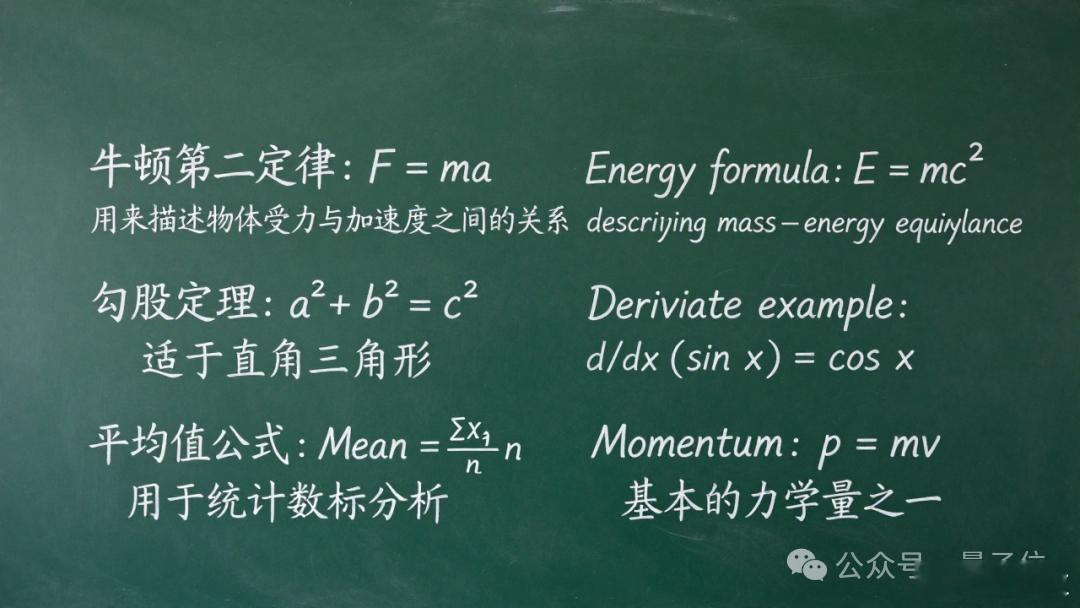 牛顿第二定律: F = ma
用来描述物体受力与加速度之间的关系
勾股定理: a² + b² = c²
适于直角三角形
平均值公式: Mean = Σx₁/n n
用于统计数标分析
Energy formula: E = mc²
descriying mass–energy equiylance
Deriviate example:
d/dx (sin x) = cos x
Momentum: p = mv
基本的力学量之一
公众号